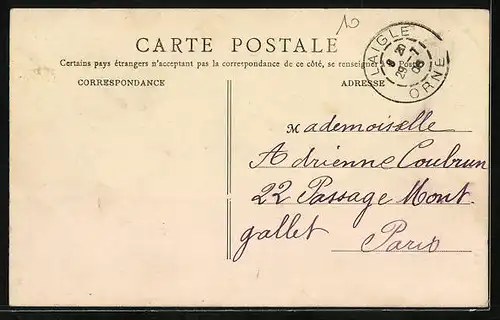 10
CARTE POSTALE
Certains pays étrangers n'acceptant pas la correspondance de ce côté, se renseigner à la Poste
CORRESPONDANCE
ADRESSE
LAIGLE
8 20
29 -7
06
ORNE
Mademoiselle
Adrienne Coubrun
22 Passage Mont
gallet
Paris